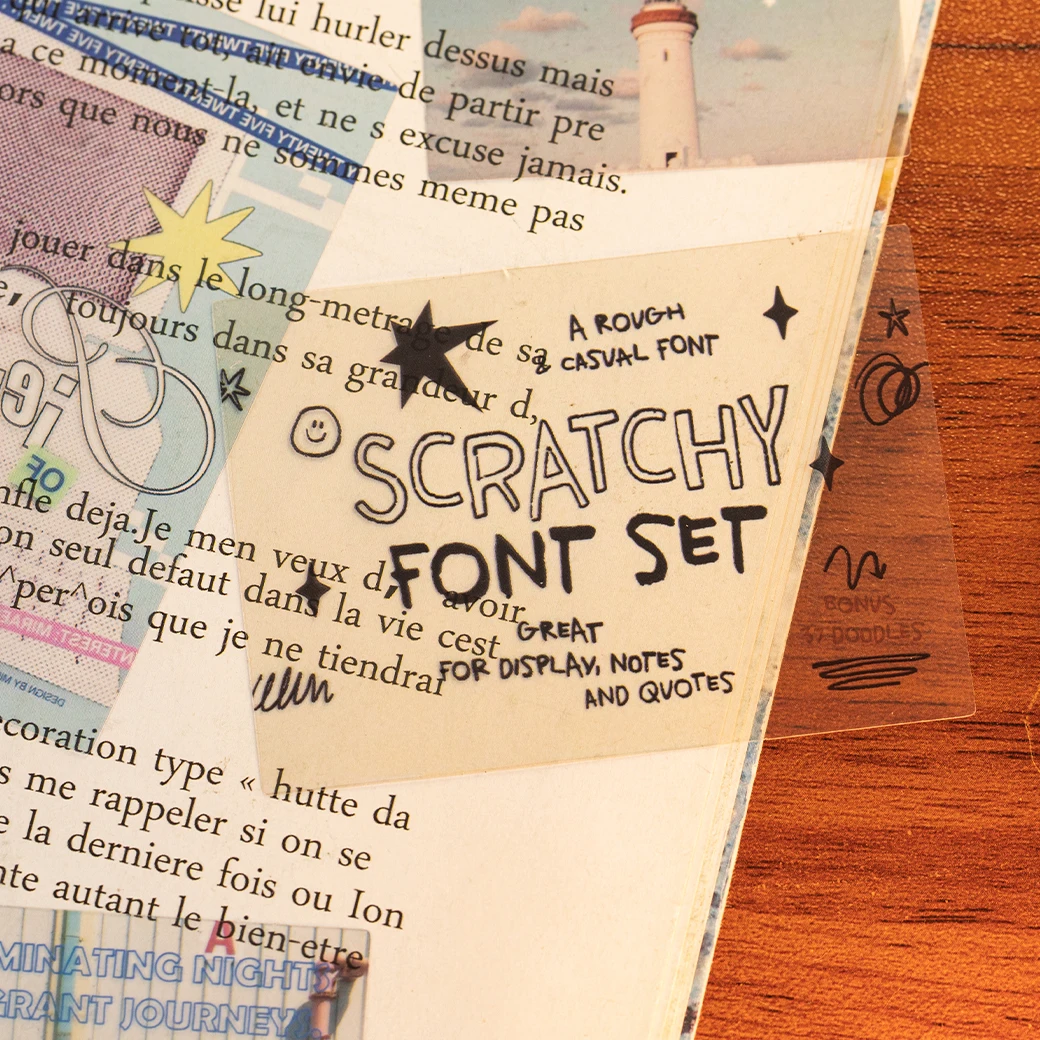 sse lui hurler dessus mais
qui arrive tot, ait envie de partir pre
a ce moment-la, et ne s excuse jamais.
ors que nous ne sommes meme pas
jouer dans le long-metrage de sa
toujours dans sa grandeur d,
A ROUGH
& CASUAL FONT
SCRATCHY
FONT SET
GREAT
FOR DISPLAY, NOTES
AND QUOTES
BONUS
37 DOODLES
OF
nfle deja.Je men veux d, avoir
on seul defaut dans la vie cest
^per^ois que je ne tiendrai
INTEREST
DESIGN BY
TWENTY FIVE TWENTY FIVE TWENTY
TWENTY FIVE TWENTY FIVE TWENTY
ecoration type « hutte da
s me rappeler si on se
e la derniere fois ou Ion
nte autant le bien-etre
A
MINATING NIGHTS
GRANT JOURNEY